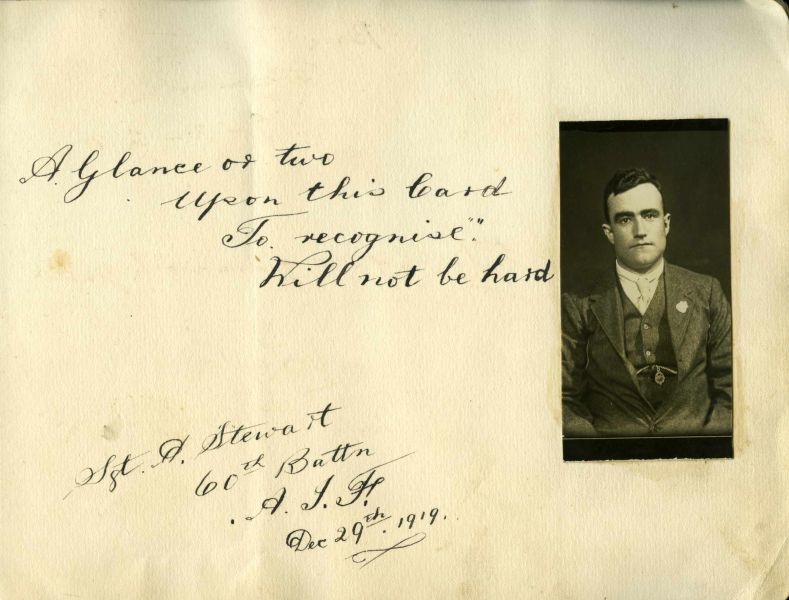 A Glance or two
Upon this Card
To recognise "."
Will not be hard
Sgt. A. Stewart
60th Battn
A. I. F.
Dec 29th. 1919.